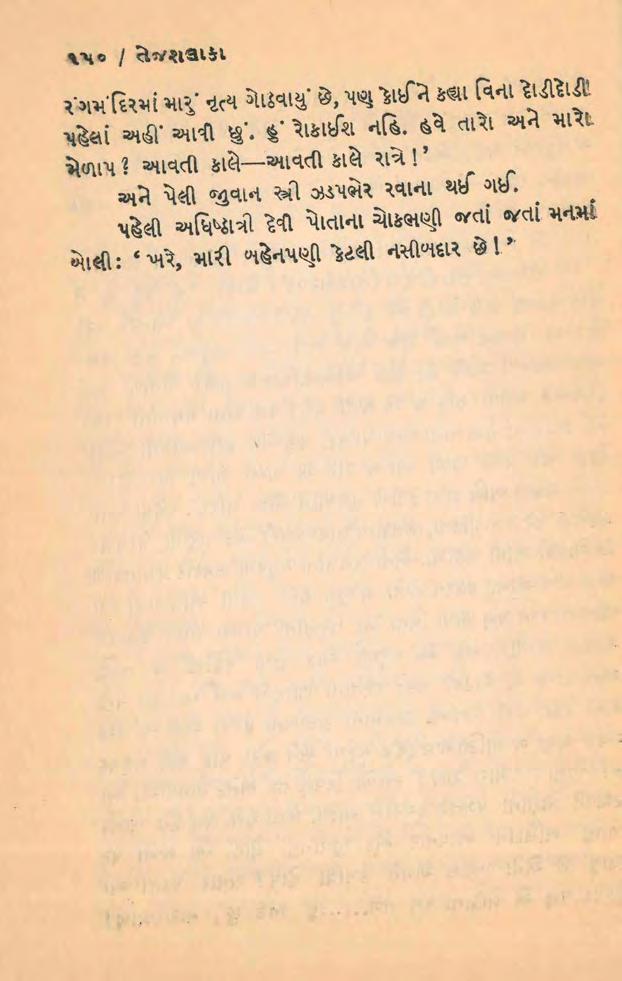 ૧૫૦ / તેજશલાકા
રંગમંદિરમાં મારું નૃત્ય ગોઠવાયું છે, પણ કોઈ ને કહ્યા વિના દોડીદોડી
પહેલાં અહીં આવી છું. હું રોકાઈશ નહિ. હવે તારો અને મારો
મેળાપ? આવતી કાલે—આવતી કાલે રાત્રે!’
અને પેલી જુવાન સ્ત્રી ઝડપભેર રવાના થઈ ગઈ.
પહેલી અધિષ્ઠાત્રી દેવી પોતાના ચોકભણી જતાં જતાં મનમાં
બોલી: ‘ખરે, મારી બહેનપણી કેટલી નસીબદાર છે!’